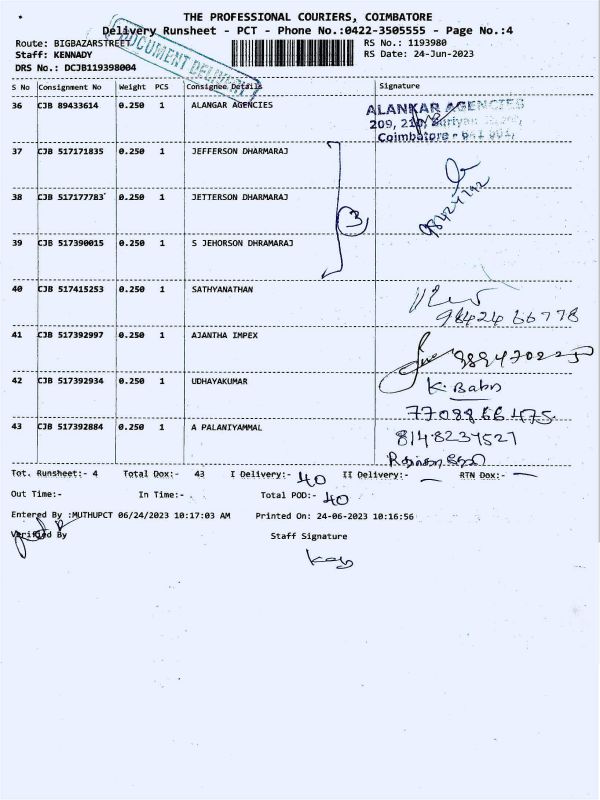 THE PROFESSIONAL COURIERS, COIMBATORE
Delivery Runsheet - PCT - Phone No.:0422-3505555 - Page No.:4
Route: BIGBAZARSTREET RS No.: 1193980
Staff: KENNADY RS Date: 24-Jun-2023
DRS No.: DCJB119398004
DOCUMENT DELIVERY
S No Consignment No Weight PCS Consignee Details Signature
36 CJB 89433614 0.250 1 ALANGAR AGENCIES
ALANKAR AGENCIES
209, 210,
Coimbatore - 641 001.
37 CJB 517171835 0.250 1 JEFFERSON DHARMARAJ
38 CJB 517177783 0.250 1 JETTERSON DHARMARAJ
3
39 CJB 517390015 0.250 1 S JEHORSON DHRAMARAJ
40 CJB 517415253 0.250 1 SATHYANATHAN
98424 66778
41 CJB 517392997 0.250 1 AJANTHA IMPEX
42 CJB 517392934 0.250 1 UDHAYAKUMAR
K. Babu
43 CJB 517392884 0.250 1 A PALANIYAMMAL
8148234521
Tot. Runsheet:- 4 Total Dox:- 43 I Delivery:- 40 II Delivery:- — RTN Dox:- —
Out Time:- In Time:- Total POD:- 40
Entered By :MUTHUPCT 06/24/2023 10:17:03 AM Printed On: 24-06-2023 10:16:56
Verified By Staff Signature